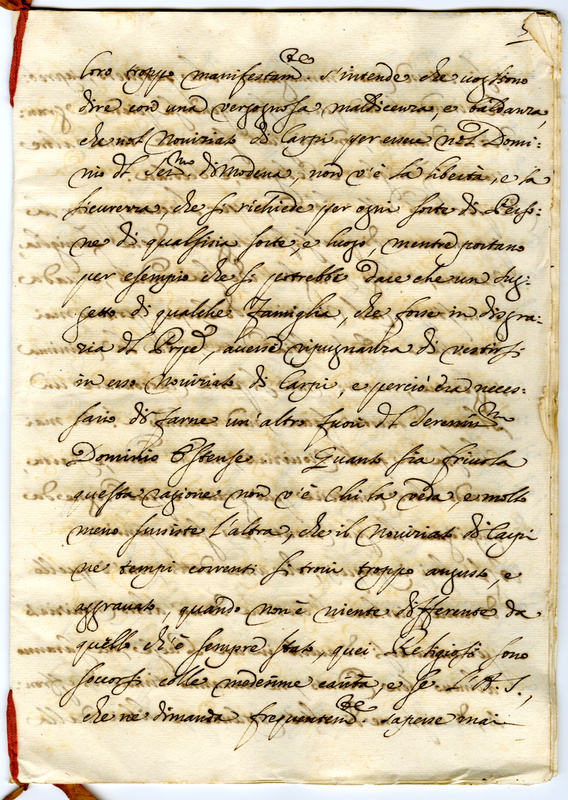 5
loro troppo manifestam.te s'intende che vogliono
dire con una vergognosa maldicenza, e baldanza,
che nel Noviziato di Carpi per essere nel Domi:
nio del Ser.mo di Modena, non v'è la libertà, e la
sicurezza, che si richiede per ogni sorte di Perso:
ne di qualsisia sorte, e luogo, mentre portano
per esempio che si potrebbe dare che un Sug:
getto di qualche Famiglia, che fosse in disgra:
zia del Prpe, avesse ripugnanza di vestirsi
in esso Noviziato di Carpi, e perciò era neces:
sario di farne un'altro fuori del Sereniss.mo
Dominio Estense. Quanto sia frivola
questa ragione non v'è chi la veda, e molto
meno sussiste l'altra, che il Noviziato di Carpi
ne tempi correnti si trovi troppo angusto, e
aggravato, quando non è niente differente da
quello ch'è sempre stato, quei Religiosi sono
soccorsi colle medeme carità, e se l'A. S.,
che ne dimanda frequentem.te sapesse mai